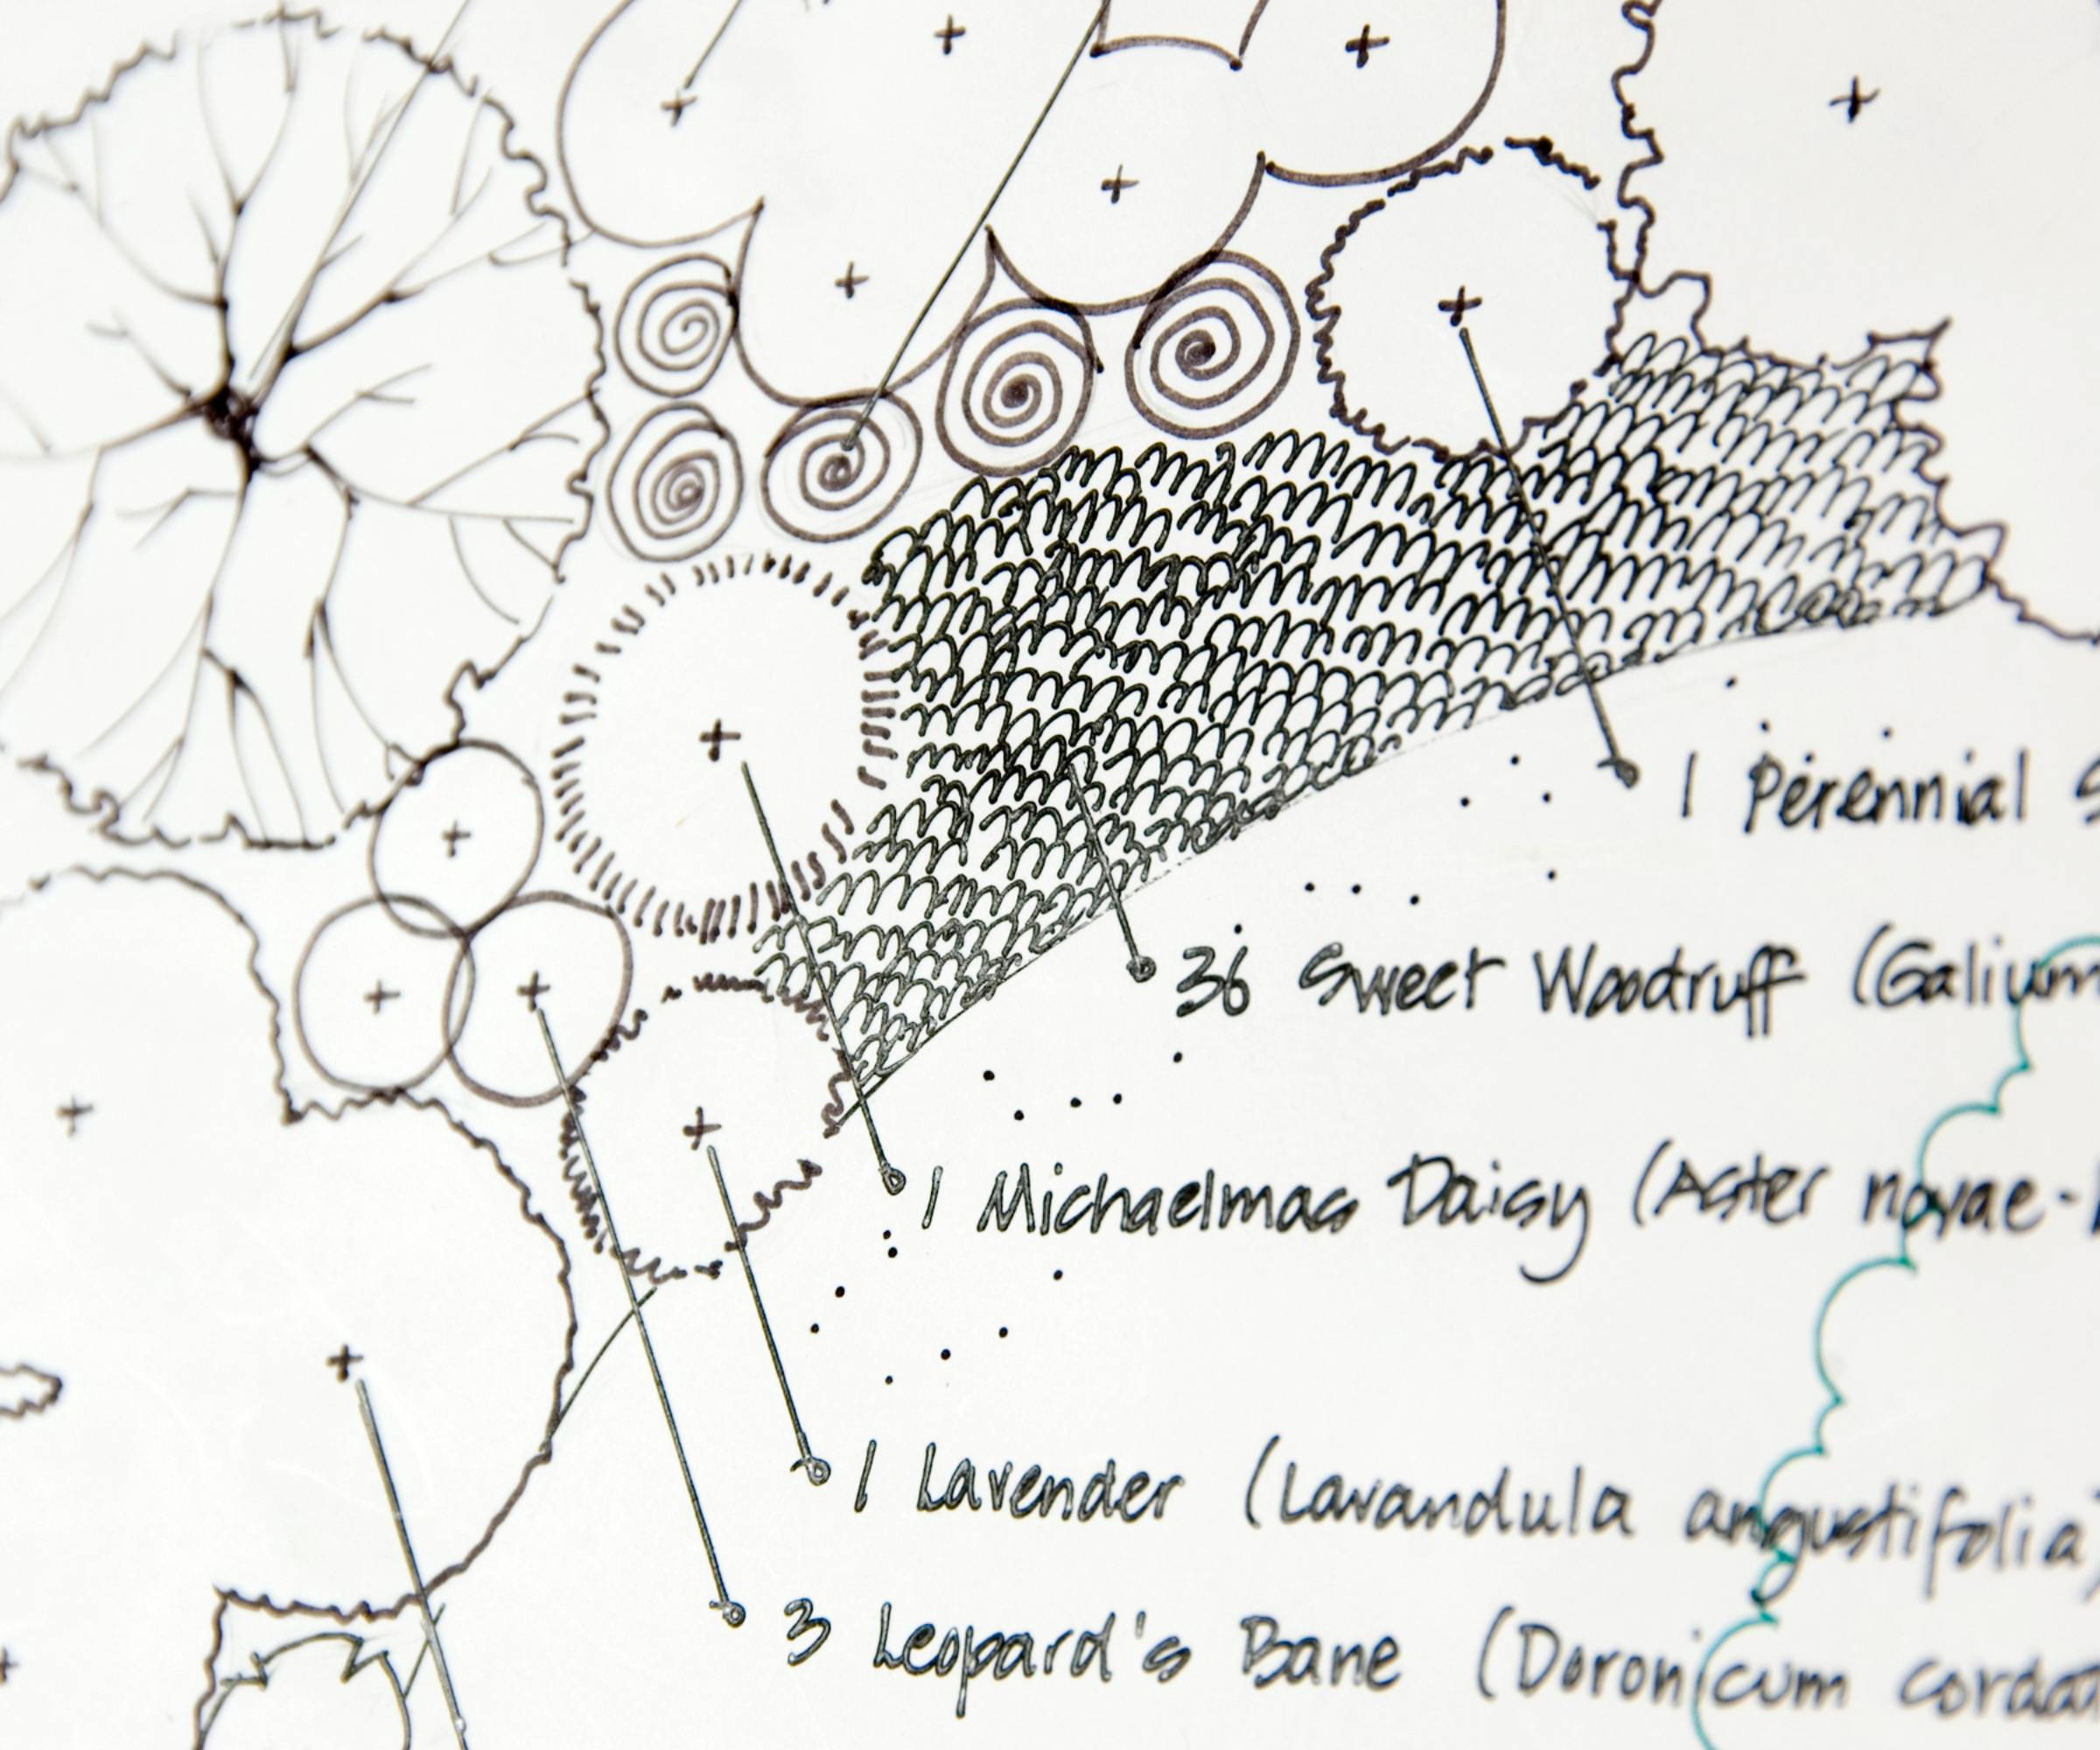 1 Perennial
36 Sweet Woodruff (Galium
1 Michaelmas Daisy (Aster novae-
1 Lavender (Lavandula angustifolia)
3 Leopard's Bane (Doronicum cordat